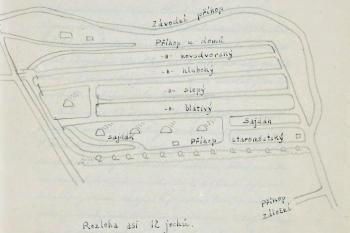 Závodní příkop
Příkop u domů
-"- novodvorský
-"- hluboký
-"- slepý
-"- blátivý
Sajdán
Sajdán
Příkop
staroměstský
Příkop
záložní
Rozloha asi 12 jochů.